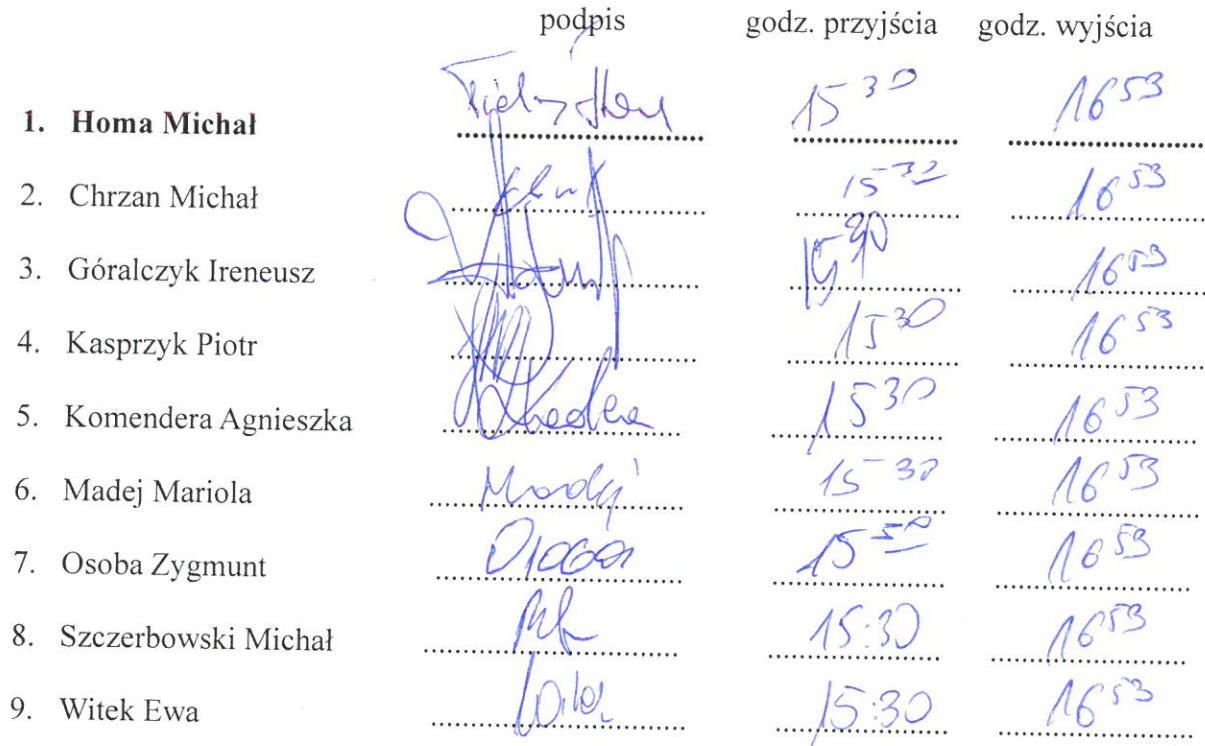 podpis godz. przyjścia godz. wyjścia
1. Homa Michał 15 30 16 53
2. Chrzan Michał 15 16 53
3. Góralczyk Ireneusz 15 30 16 53
4. Kasprzyk Piotr 15 30 16 53
5. Komendera Agnieszka 15 30 16 53
6. Madej Mariola Madej 15 30 16 53
7. Osoba Zygmunt Osoba 15 16 53
8. Szczerbowski Michał 15:30 16 53
9. Witek Ewa Witek 15:30 16 53